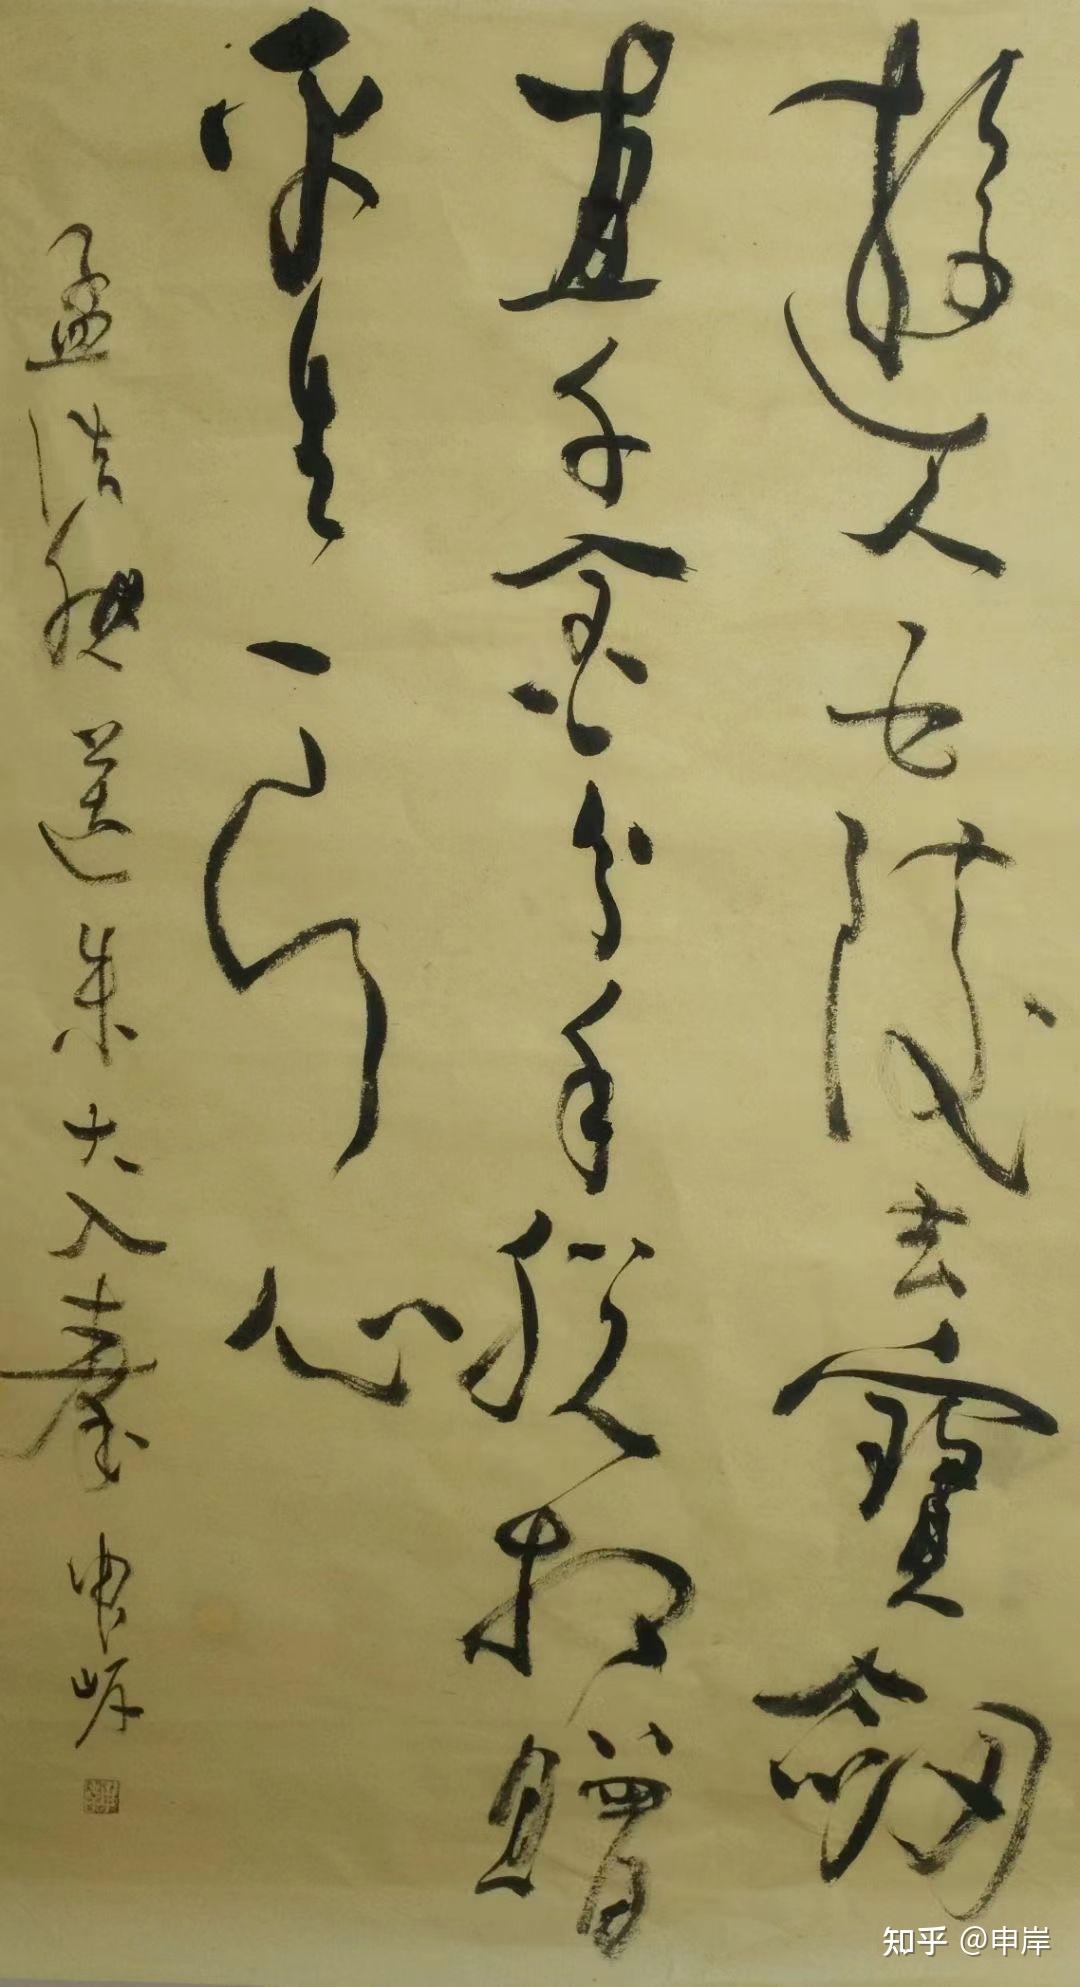 遊人五陵去寶劍
直千金分手脫相贈
平生一片心
孟浩然送朱大入秦 申岸
知乎 @申岸